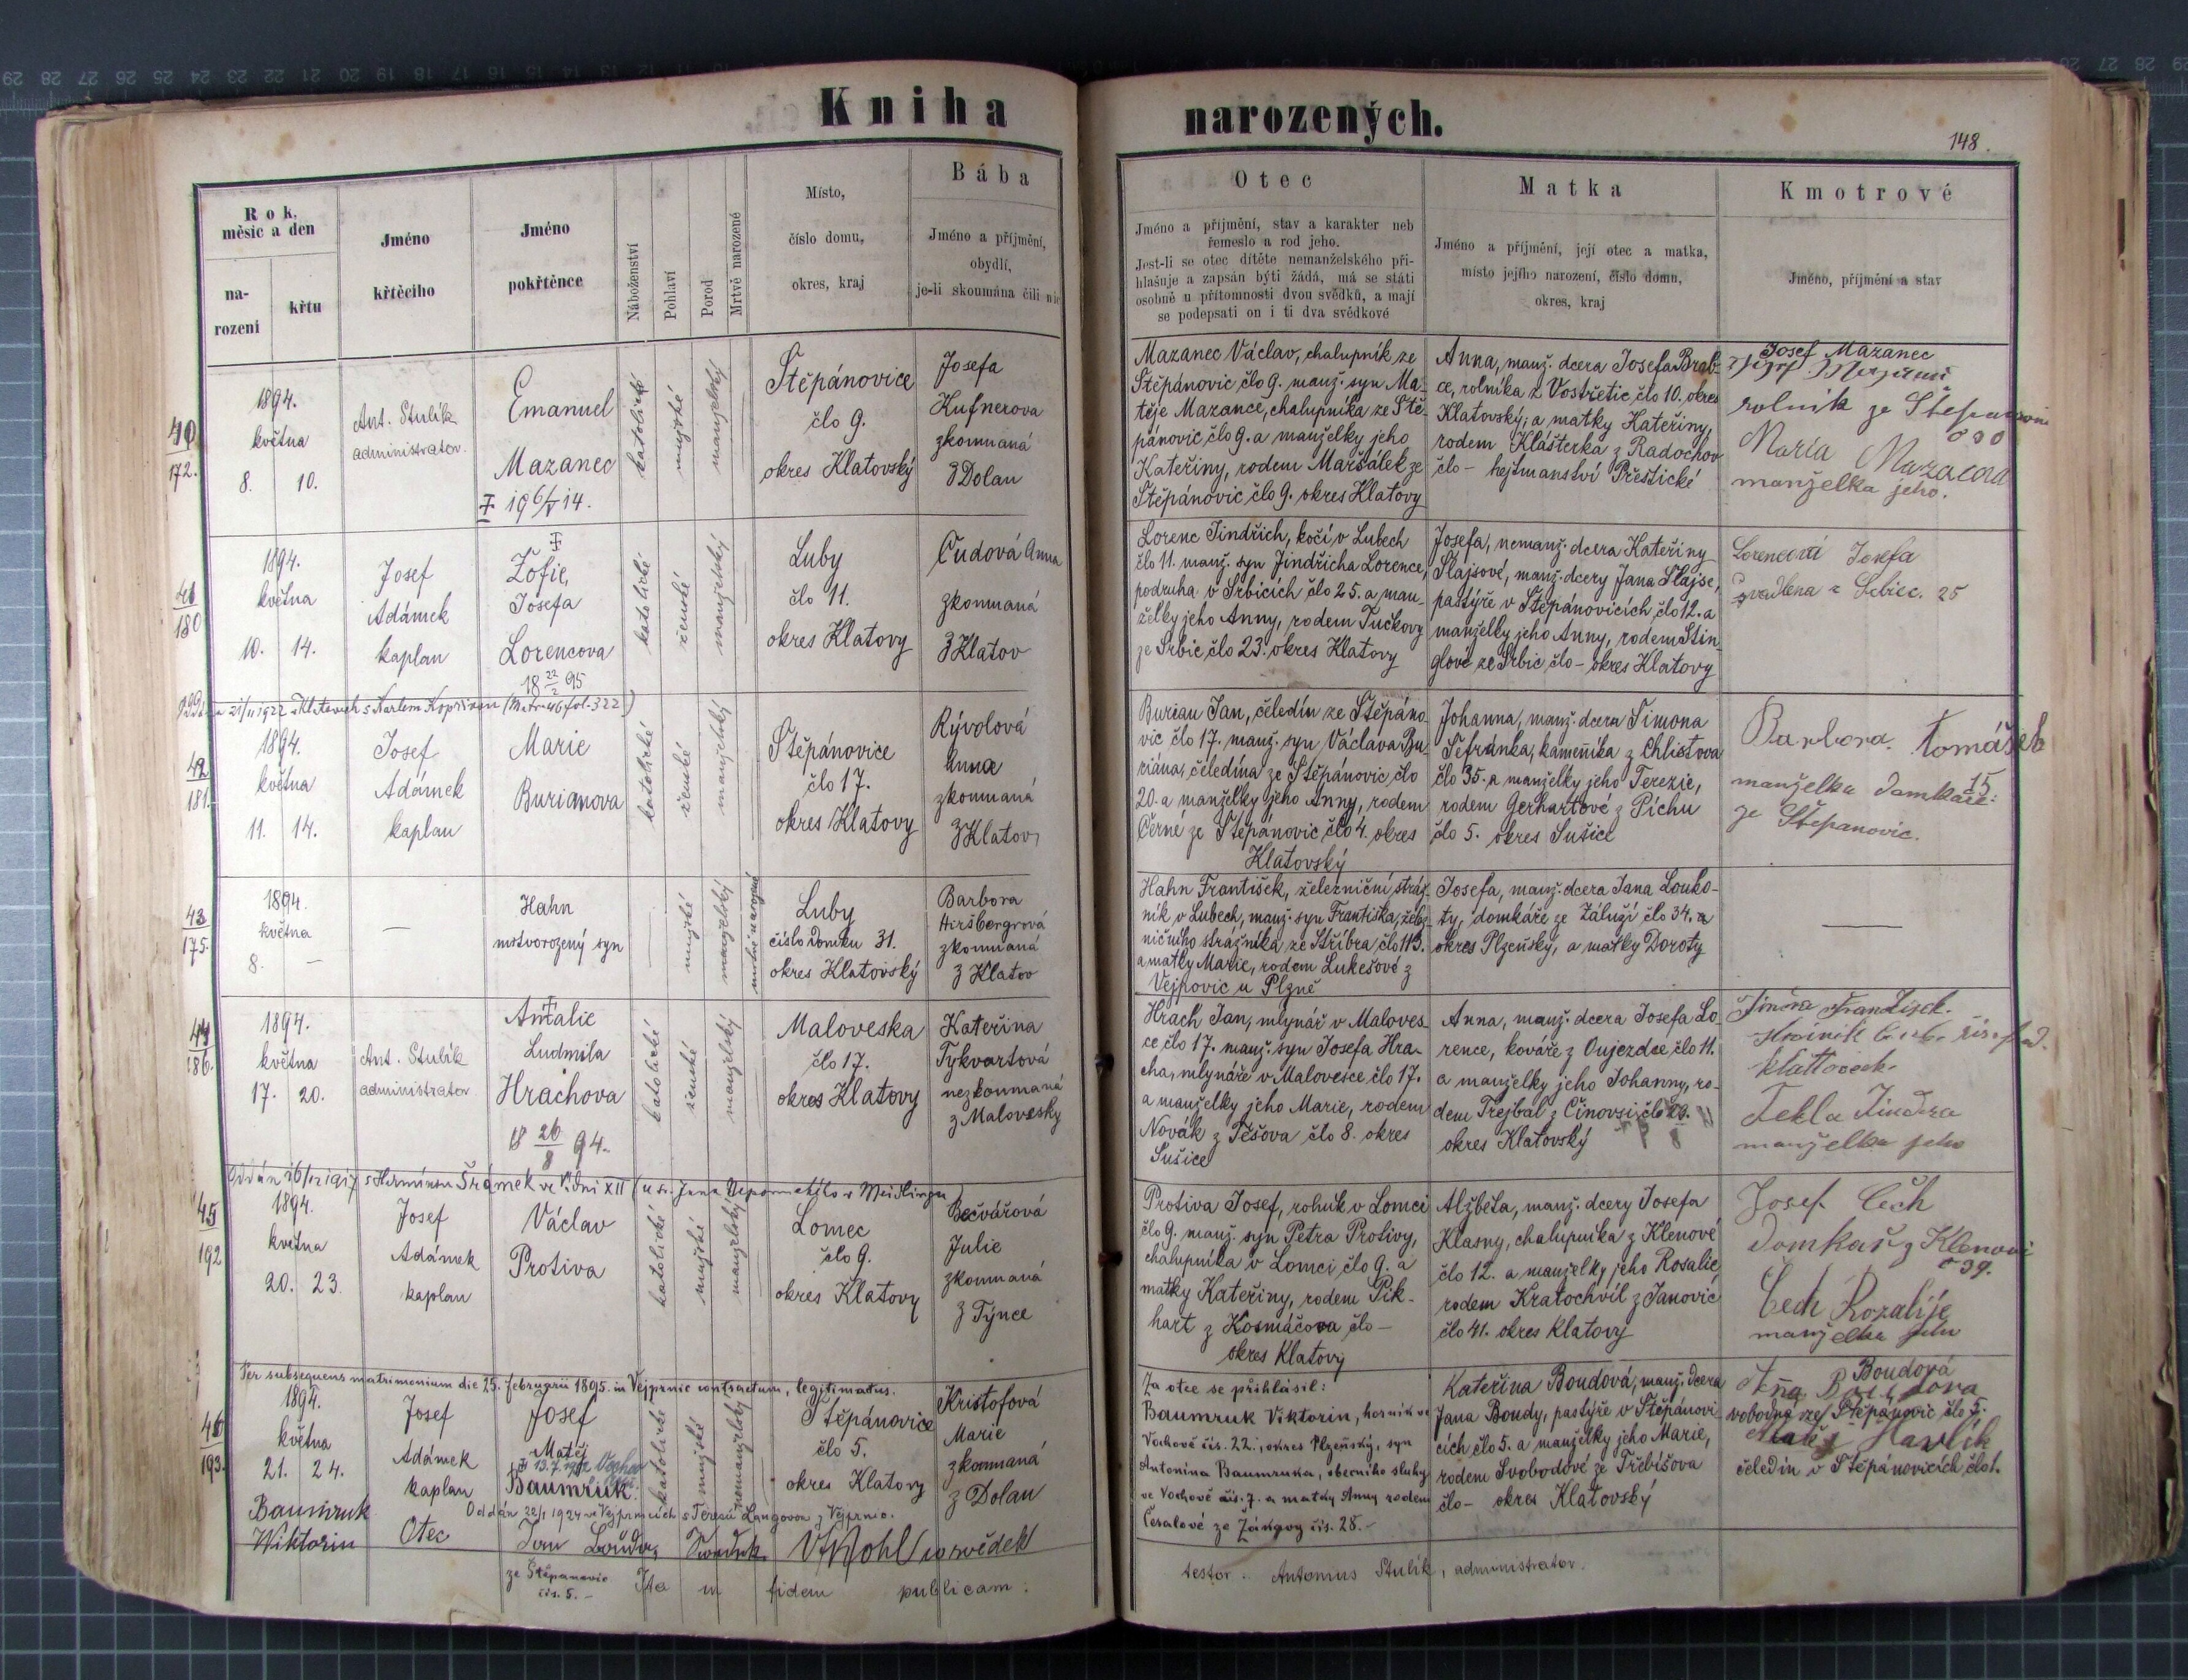 Kniha narozených.
148.
Rok, měsíc a den
na-
rození
křtu
Jméno
křtěcího
Jméno
pokřtěnce
Náboženství
Pohlaví
Porod
Mrtvě narozené
Místo,
číslo domu,
okres, kraj
Bába
Jméno a příjmění,
obydlí,
je-li skoumána čili nic
Otec
Jméno a příjmění, stav a karakter neb
řemeslo a rod jeho.
Jest-li se otec dítěte nemanželského při-
hlašuje a zapsán býti žádá, má se státi
osobně u přítomnosti dvou svědků, a mají
se podepsati on i ti dva svědkové
Matka
Jméno a příjmění, její otec a matka,
místo jejího narození, číslo domu,
okres, kraj
Kmotrové
Jméno, příjmění a stav
40
172.
1894.
května
8. 10.
Ant. Stulík
administrator.
Emanuel
Mazanec
katolické
mužské
manželský
Štěpánovice
člo 9.
okres Klatovský
Josefa
Kufnerova
zkoumaná
z Dolan
Mazanec Václav, chalupník ze
Štěpánovic člo 9. manž. syn Ma-
těje Mazance, chalupníka ze Ště-
pánovic člo 9. a manželky jeho
Kateřiny, rodem Maršálek ze
Štěpánovic člo 9. okres Klatovy
Anna, manž. dcera Josefa Brab-
ce, rolníka z Vostřetic člo 10. okres
Klatovský, a matky Kateřiny,
rodem Klášterka z Radochov
člo - hejtmanství Přeštické
Josef Mazanec
rolník ze
Maria
manželka jeho.
41
180
1894.
května
10. 14.
Josef
Adámek
kaplan
Žofie,
Josefa
Lorencova
18 22/2 95
katolické
ženské
manželský
Luby
člo 11.
okres Klatovy
Čudová Anna
zkoumaná
z Klatov
Lorenc Jindřich, kočí v Lubech
člo 11. manž. syn Jindřicha Lorence,
podruha v Srbicích člo 25. a man-
želky jeho Anny, rodem Tučkovy
ze Srbic člo 23. okres Klatovy
Josefa, nemanž. dcera Kateřiny
Šlajsové, manž. dcery Jana Šlajse,
pastýře v Štěpánovicích člo 12. a
manželky jeho Anny, rodem Štin-
glové ze Srbic člo - okres Klatovy
Lorencová Josefa
25
42
181.
1894.
května
11. 14.
Josef
Adámek
kaplan
Marie
Burianova
katolické
ženské
manželský
Štěpánovice
člo 17.
okres Klatovy
Rývolová
Anna
zkoumaná
z Klatov
Burian Jan, čeledín ze Štěpáno-
vic člo 17. manž. syn Václava Bu-
riána, čeledína ze Štěpánovic člo
20. a manželky jeho Anny, rodem
Černé ze Štěpánovic člo 4. okres
Klatovský
Johanna, manž. dcera Šimona
Šefránka, kameníka z Chlistova
člo 35. a manželky jeho Terezie,
rodem Gerhartové z Píchu
člo 5. okres Sušice
Barbora Tomášek
manželka domkáře 15
ze Štěpanovic.
43
175.
1894.
května
8. -
-
Hahn
mrtvorozený syn
mužské
manželský
mrtvě narozené
Luby
číslo domku 31.
okres Klatovský
Barbora
Hiršbergrová
zkoumaná
z Klatov
Hahn František, železniční stráž-
ník v Lubech, manž. syn Františka, želez-
ničního strážníka ze Stříbra člo 113.
a matky Marie, rodem Lukešové z
Vejpovic u Plzně
Josefa, manž. dcera Jana Louko-
ty, domkáře ze Záluží člo 34.
okres Plzeňský, a matky Doroty
44
186.
1894.
května
17. 20.
Ant. Stulík
administrator
Amalie
Ludmila
Hrachova
18 26/8 94.
katolické
ženské
manželský
Maloveska
člo 17.
okres Klatovy
Kateřina
Tykvartová
nezkoumaná
z Malovesky
Hrach Jan, mlynář v Maloves-
ce člo 17. manž. syn Josefa Hra-
cha, mlynáře v Malovesce člo 17.
a manželky jeho Marie, rodem
Novák z Těšova člo 8. okres
Sušice
Anna, manž. dcera Josefa Lo-
rence, kováře z Oujezdce člo 11.
a manželky jeho Johanny, ro-
dem Trejbal z Činovsi člo
okres Klatovský
Jindra František.
Tekla Jindra
manželka jeho
45
192
1894.
května
20. 23.
Josef
Adámek
kaplan
Václav
Protiva
katolické
mužské
manželský
Lomec
člo 9.
okres Klatovy
Bečvářová
Julie
zkoumaná
z Týnce
Protiva Josef, rolník v Lomci
člo 9. manž. syn Petra Protivy,
chalupníka v Lomci člo 9. a
matky Kateřiny, rodem Pik-
hart z Kosmáčova člo -
okres Klatovy
Alžběta, manž. dcery Josefa
Klasny, chalupníka z Klenové
člo 12. a manželky jeho Rosalie
rodem Kratochvíl z Janovic
člo 41. okres Klatovy
Josef Čech
domkař z Klenové
39.
Čech Rozalije
manželka jeho
Per subsequens matrimonium die 25. februarii 1895. in Vejprnic contractum, legitimatus.
46
193.
1894.
května
21. 24.
Josef
Adámek
kaplan
Josef
Matěj
Baumruk
katolické
mužské
nemanželský
Štěpánovice
člo 5.
okres Klatovy
Kristofová
Marie
zkoumaná
z Dolan
Za otce se přihlásil:
Baumruk Viktorin, horník ve
Vochově čís. 22., okres Plzeňský, syn
Antonína Baumruka, obecního sluhy
ve Vochově čís. 7. a matky Anny rodem
Česalové ze Žákavy čís. 28.-
Kateřina Boudová, manž. dcera
Jana Boudy, pastýře v Štěpánovi-
cích člo 5. a manželky jeho Marie,
rodem Svobodové ze Třebíšova
člo - okres Klatovský
Boudová
svobodná ze Štěpánovic člo 5.
Matěj Havlík
čeledín v Štěpánovicích člo 1.
Oddán 22/1 1924 ve Vejprnicích s Terezií Langovou z Vejprnic.
Baumruk
Wiktorin
Otec
Jan Bouda,
ze Štěpanovic
čís. 5. -
svědek
Ita in fidem publicam:
testor. Antonius Stulík, administrator.